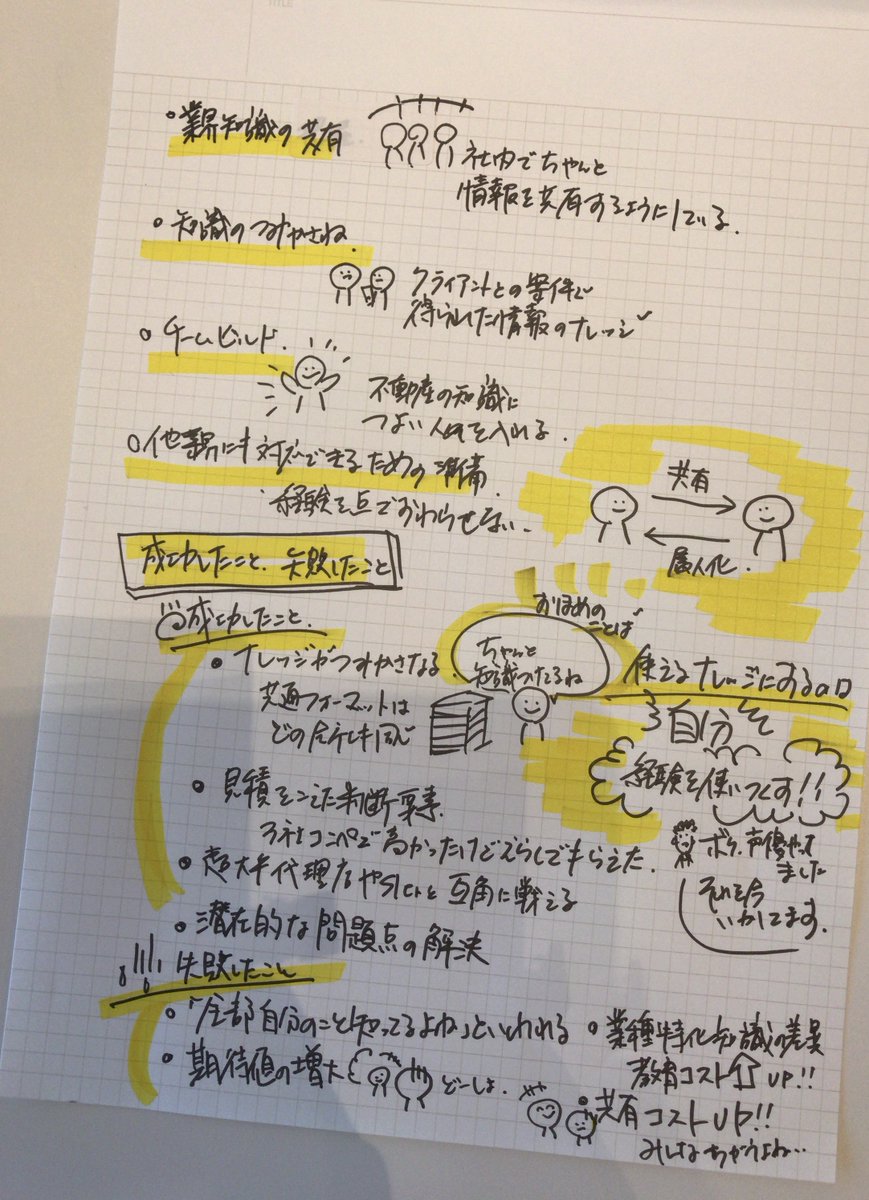 TITLE
業界知識の共有
社内でちゃんと
情報を共有するようにしている.
知識のつみかさね.
クライアントとの案件で
得られた情報のナレッジ
チームビルド.
不動産の知識に
つよい人材を入れる.
他業界にも対応できるための準備.
経験を点でおわらせない.
共有
属人化.
成功したこと.失敗したこと
成功したこと.
ナレッジがつみかさなる.
共通フォーマットは
どの
も同じ
おほめの
ことば
ちゃんと
知識つたえるね
使えるナレッジにする
自分
経験を使いつくす!!
ボク、声優やって
ました
それを今
いかしてます.
見積をこえた判断要素.
3社コンペで高かったけど
もらえた.
超大手代理店や
と互角に戦える
潜在的な問題点の解決
失敗したこと
「全部自分のこと知ってるよね」といわれる
期待値の増大
どーしよ.
業種特化知識の差異
教育コスト UP!!
共有コストUP!!
みんなちがうよね…